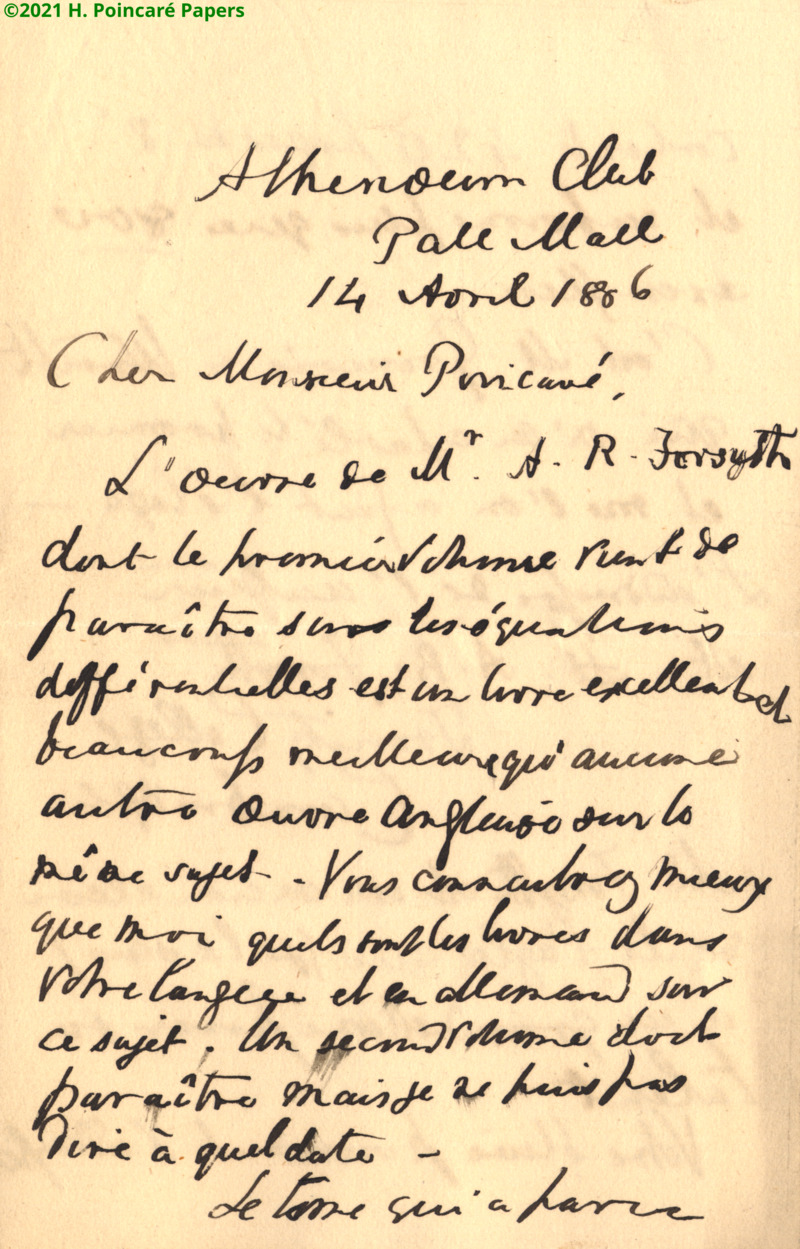 ©2021 H. Poincaré Papers
Athenœum Club
Pall Mall
14 Avril 1886
Cher Monsieur Poincaré,
L'œuvre de Mr. A. R. Forsyth
dont le premier volume vient de
paraître sur les équations
différentielles est un livre excellent et
beaucoup meilleure qu'aucune
autre œuvre Anglaise sur le
même sujet. Vous connaitrez mieux
que moi quels sont les livres dans
votre langue et en allemand sur
ce sujet. Un second volume doit
paraître mais je ne puis pas
dire à quel date –
Le tome qui a paru